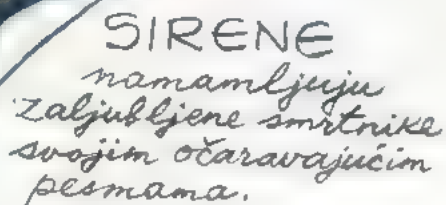 SIRENE
namamljuju
zaljubljene smrtnike
svojim očaravajućim
pesmama.